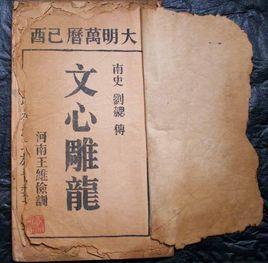 大明萬曆己酉
南史 劉勰 傳
文心雕龍
河南王維儉訓